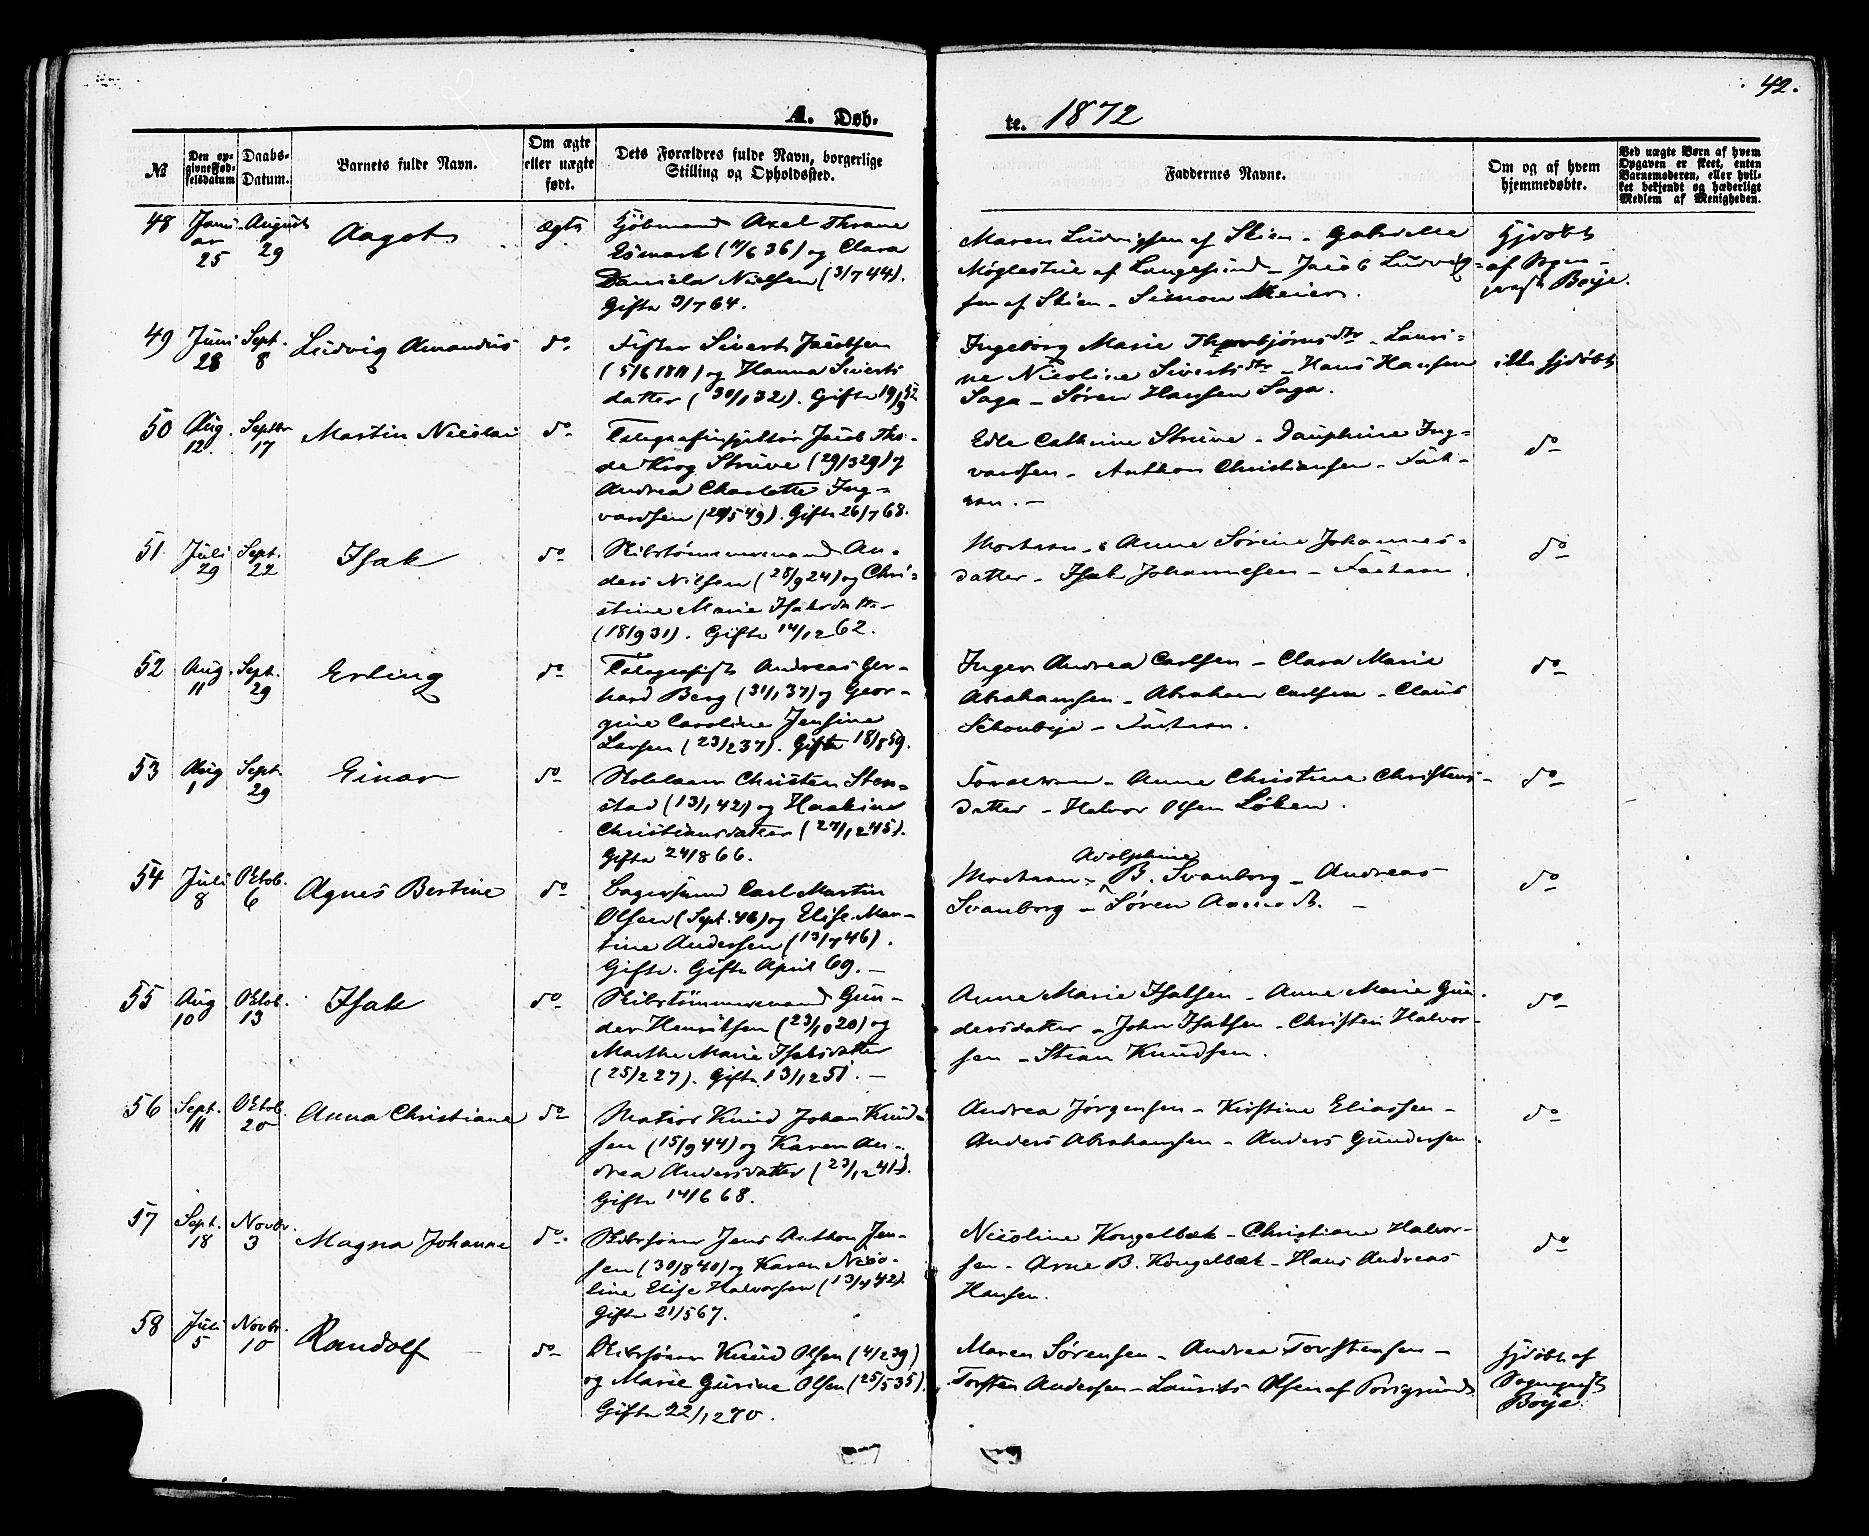 42.
A. Døb- te. 1872
№ Den opgivne Fødselsdatum Daabs-Datum. Barnets fulde Navn. Om ægte eller uægte født. Dets Forældres fulde Navn, borgerlige Stilling og Opholdssted. Faddernes Navne. Om og af hvem hjemmedøbt. Ved uægte Børn af hvem Opgaven er skeet, enten Barnemoderen, eller hvilket bekjendt og hæderligt Medlem af Menigheden.
48 Januar 25 August 29 Aagot ægte
Kjøbmand Axel Thrane
Esmark (11/6 36) og Clara
Daniela Nielsen (3/7 44).
Gifte 3/7 64.
Maren Ludvigsen af Skien - Gabrielle
Møglestue af Langesund - Jacob Ludvig-
sen af Skien - Simon Meier.
Hjdøbt
af Sogne-
præst Boye.
49 Juni 28 Sept. 8 Ludvig Amandus do
Fisker Sivert Jacobsen
(5/6 1811) og Hanna Siverts
datter (30/1 32). Gifte
Ingeborg Marie Thorbjørnsdtr - Lauri-
ne Nicoline Sivertsdtr - Hans Hansen
Saga - Søren Hansen Saga.
ikke hjdøbt
50 Aug. 12 Septbr 17 Martin Nicolai do
Telegrafinspektør Jacob Tho-
de Krog Struve (29/3 29) og
Andrea Charlotte Ing-
vardsen (29/5 49). Gifte 26/7 68.
Edle Cathrine Struve - Dauphine Ing-
vardsen - Anthon Christiansen - Fad-
ran. -
do
51 Juli 29 Sept. 22 Isak do
Skibstømmermand An-
ders Nilsen (28/9 24) og Chri-
stine Marie Isaksdatter
(18/9 31). Gifte 14/12 62.
Modraan - Anne Sørine Johannes-
datter - Isak Johannesen - Fadraan.
do
52 Aug. 11 Sept. 29 Erling do
Telegrafist Andreas Ger-
hard Berg (31/1 37) og Geor-
gine Caroline Jensine
Larsen (23/2 37). Gifte 18/8 59.
Inger Andrea Carlsen - Clara Marie
Abrahamsen - Abraham Carlsen - Claus
Schonbye - Fadraan.
do
53 Aug 1 Sept. 29 Einar do
Skolelærer Christen Sten-
stad (13/1 42) og Haakine
Christiansdatter (27/12 45).
Gifte 24/8 66.
Forældrene - Anne Christine Christens-
datter - Halvor Olsen Løken.
do
54 Juli 8 Oktob. 6 Agnes Bertine do
Bagersvend Carl Martin
Olsen (Sept. 46) og Elise Mar-
tine Andersen (13/7 46).
Gifte. Gifte April 69. -
Adolphine
Modraan - B. Svanborg - Andreas
Svanborg - Søren
do
55 Aug 10 Oktob. 13 Isak do
Skibstømmermand Gun-
der Henriksen (23/10 20) og
Marthe Marie Isaksdatter
(25/2 27). Gifte 13/12 51. -
Anne Marie Isaksen - Anne Marie Gun-
dersdatter - John Isaksen - Christen Halvor-
sen - Stian Knudsen.
do
56 Sept. 11 Oktob. 20 Anna Christiane do
Matros Knud Johan Knud-
sen (15/9 44) og Karen An-
drea Andersdatter (23/12 41).
Gifte 14/6 68.
Andrea Jørgensen - Kirstine Eliassen -
Anders Abrahamsen - Anders Gundersen.
do
57 Sept. 18 Novbr. 3 Magna Johanne do
Skibsfører Jens Anthon Jen-
sen (30/8 40) og Karen Nico-
line Elise Halvorsen (13/4 42).
Gifte 21/5 67.
Nicoline Kongelbæk - Christiane Halvor-
sen - Arne B. Kongelbæk - Hans Andreas
Hansen.
do
58 Juli 5 Novbr. 10 Randolf do
Skibsfører Knud Olsen (4/2 39)
og Marie Gurine Olsen (25/5 35).
Gifte 22/12 70.
Maren Sørensen - Andrea Torstensen -
Torsten Andersen - Laurits Olsen af Porsgrund
Hjdøbt af
Sognepræst
Boye.